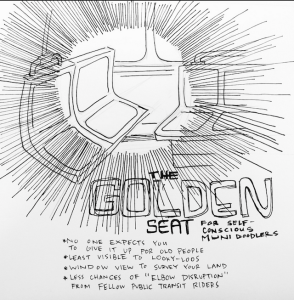 THE
GOLDEN
SEAT FOR SELF-
CONSCIOUS
MUNI DOODLERS
• NO ONE EXPECTS YOU
TO GIVE IT UP FOR OLD PEOPLE
• LEAST VISIBLE TO LOOKY-LOOS
• WINDOW VIEW TO SURVEY YOUR LAND
• LESS CHANCES OF "ELBOW DISRUPTION"
FROM FELLOW PUBLIC TRANSIT RIDERS